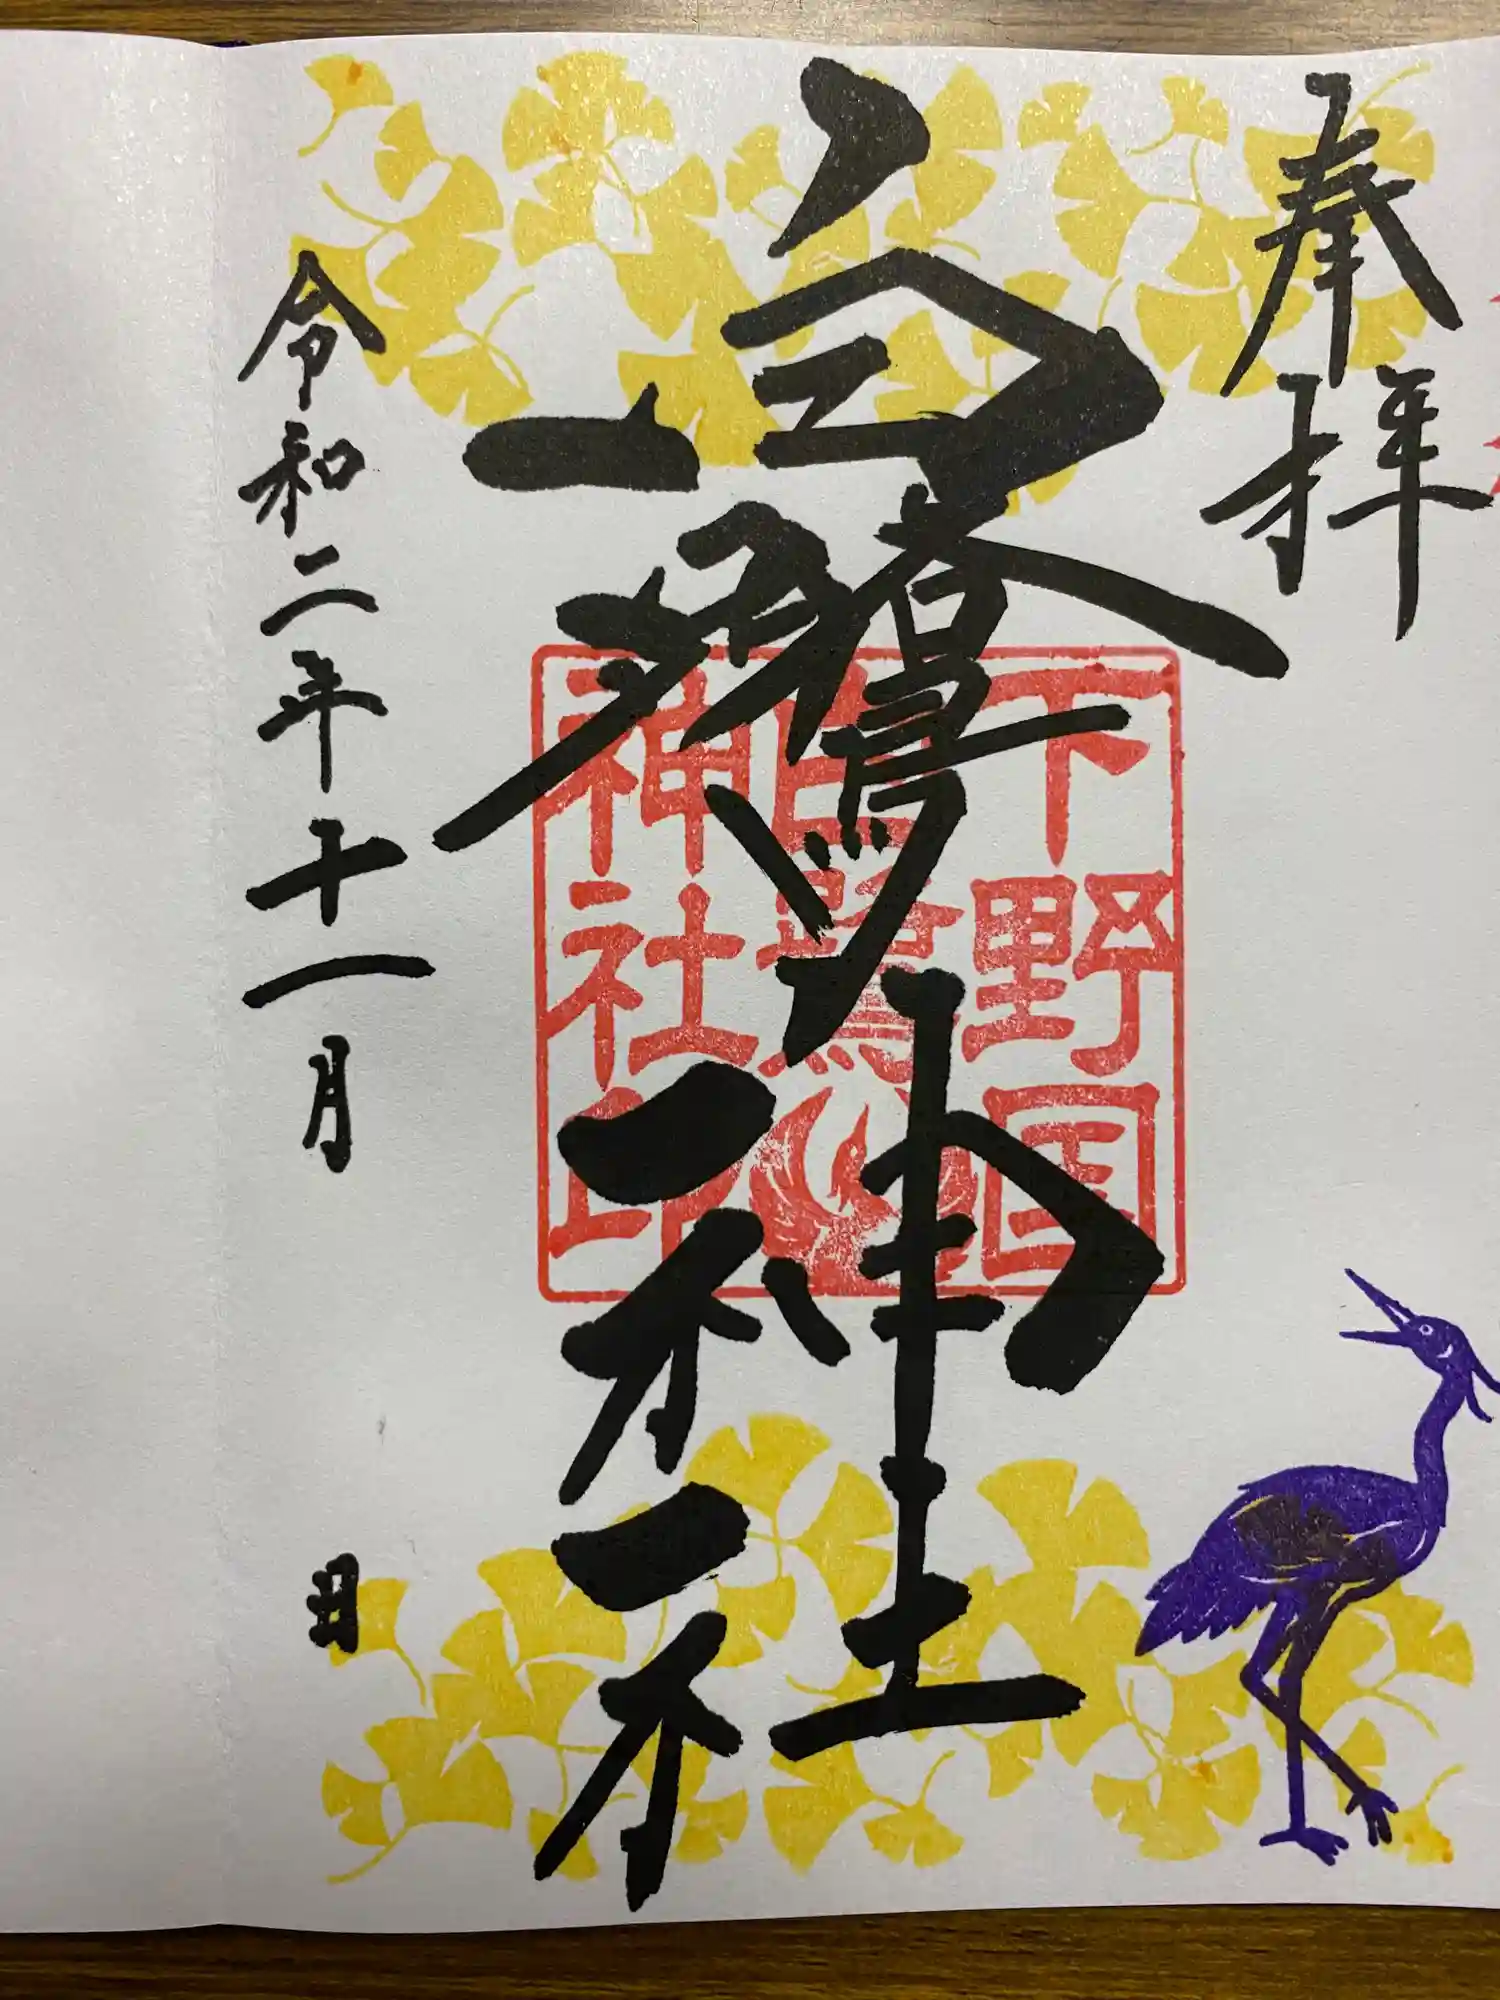 奉拝
白鷺神社
下野国
白鷺
神社印
令和二年十一月 日